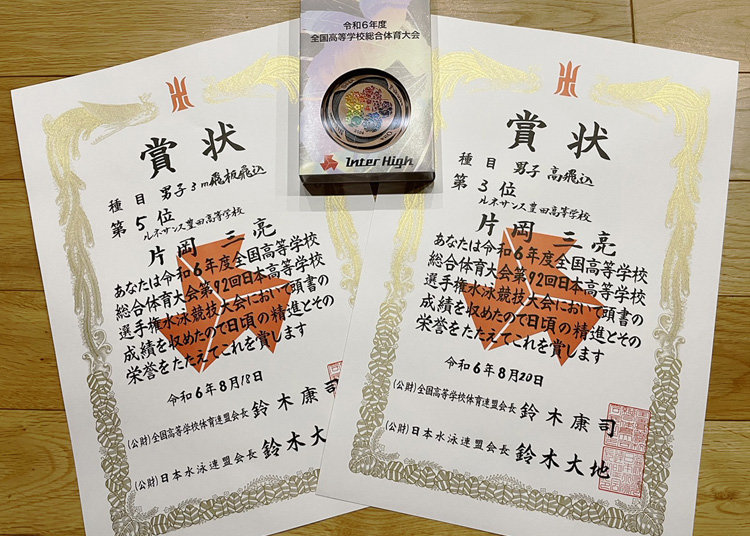 令和6年度
全国高等学校総合体育大会
Inter High
賞状
種目 男子3m飛板飛込
第5位
ルネサンス豊田高等学校
片岡三亮
あなたは令和6年度全国高等学校
総合体育大会第92回日本高等学校
選手権水泳競技大会において頭書の
成績を収めたので日頃の精進とその
栄誉をたたえてこれを賞します
令和6年8月18日
(公財)全国高等学校体育連盟会長 鈴木康司
(公財)日本水泳連盟会長 鈴木大地
賞状
種目 男子 高飛込
第3位
ルネサンス豊田高等学校
片岡三亮
あなたは令和6年度全国高等学校
総合体育大会第92回日本高等学校
選手権水泳競技大会において頭書の
成績を収めたので日頃の精進とその
栄誉をたたえてこれを賞します
令和6年8月20日
(公財)全国高等学校体育連盟会長 鈴木康司
(公財)日本水泳連盟会長 鈴木大地